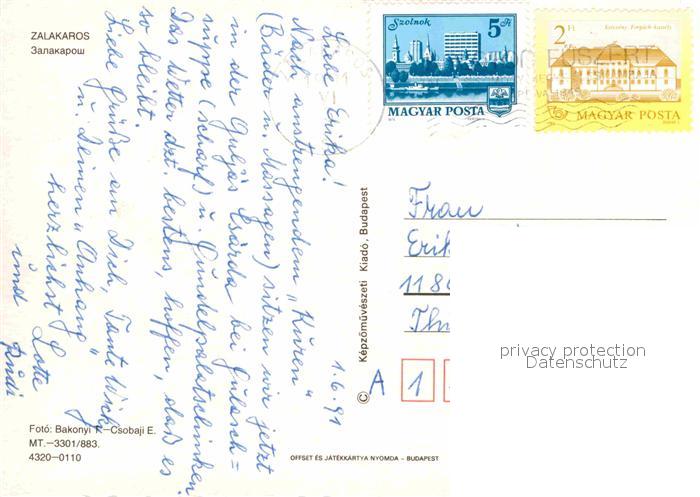 ZALAKAROS
Залакарош
Szolnok
5 Ft
MAGYAR POSTA
2 Ft
MAGYAR POSTA
1.6.91
Liebe Erika!
Nach anstrengendem „Kuren“
(Bäder u. Massagen) sitzen wir jetzt
in der Gulyás Csárda bei Gulasch=
suppe (scharf) u. Gundelpalatschinken
Das Wetter dzt. bestens, hoffen, daß es
so bleibt.
Liebe Grüße an Dich, Tante
u. Deinen „Anhang“
herzlichst Lotte
und Rudi
Képzőművészeti Kiadó, Budapest
Frau
Erik
118
A
1
privacy protection
Datenschutz
Fotó: Bakonyi –Csobaji E.
MT.–3301/883.
4320–0110
OFFSET ÉS JÁTÉKKÁRTYA NYOMDA – BUDAPEST